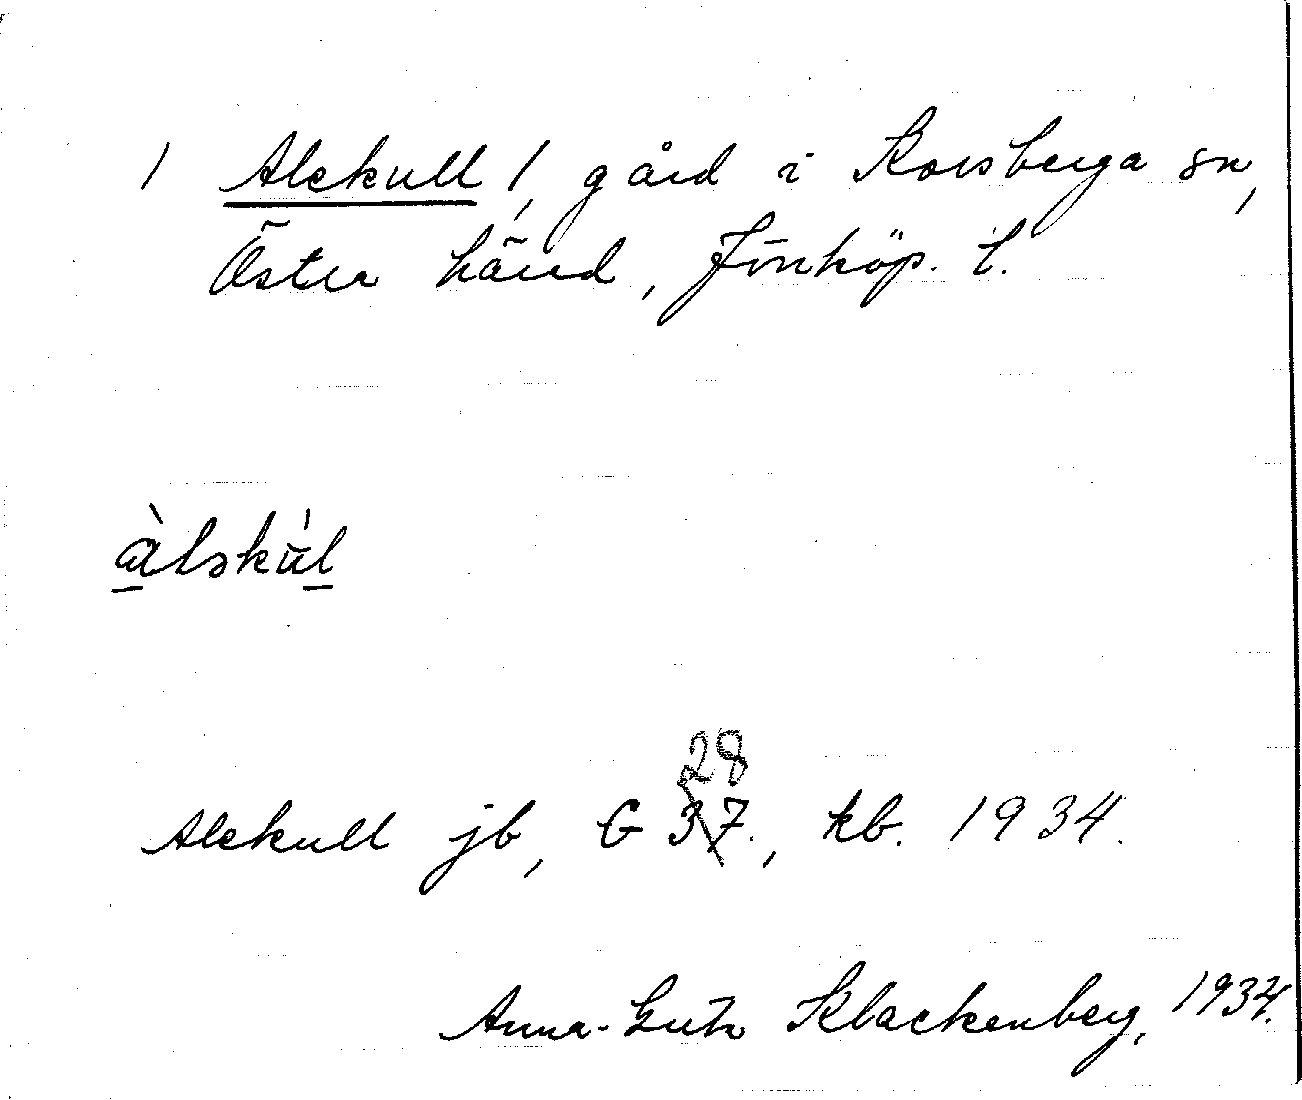 / Alekull /, gård i Korsberga sn,
Östra härad, Jönköp. l.
àləkúl
28
Alekull jb, G 37., kb. 1934.
Anna-Greta Klackenberg, 1934.